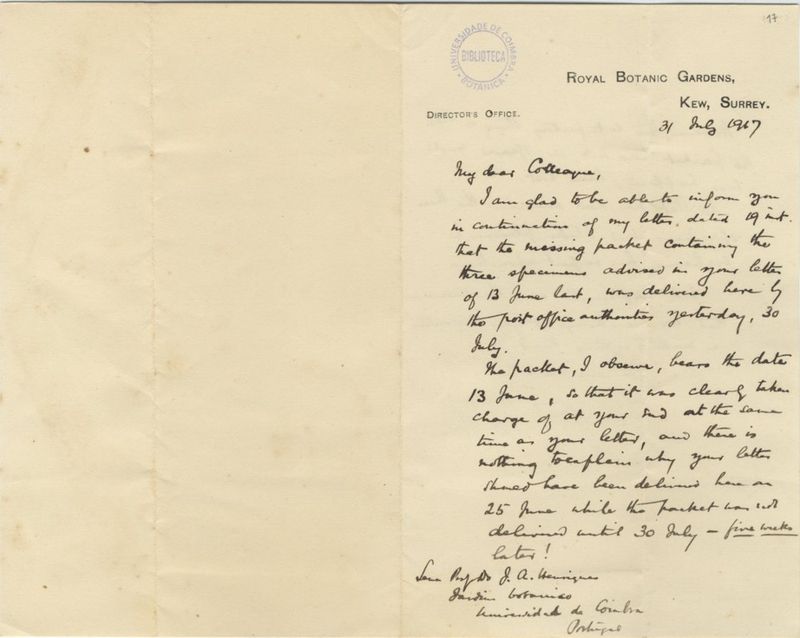 17
UNIVERSIDADE DE COIMBRA
BIBLIOTECA
BOTANICA
ROYAL BOTANIC GARDENS,
KEW, SURREY.
DIRECTOR'S OFFICE.
31 July 1917
My dear Colleague,
I am glad to be able to inform you
in continuation of my letter dated 19 inst.
that the missing packet containing the
three specimens advised in your letter
of 13 June last, was delivered here by
the post office authorities yesterday, 30
July.
The packet, I observe, bears the date
13 June, so that it was clearly taken
charge of at your end at the same
time as your letter, and there is
nothing to explain why your letter
should have been delivered here on
25 June while the packet was not
delivered until 30 July – five weeks
later!
J. A. Henriques
Jardim botanico
Universidade de Coimbra
Portugal